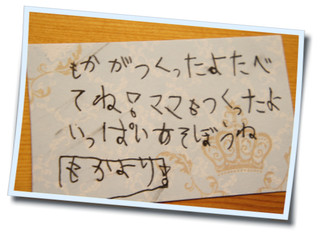 もかがつくったよたべ
てね!ママもつくったよ
いっぱいあそぼうね
もかより